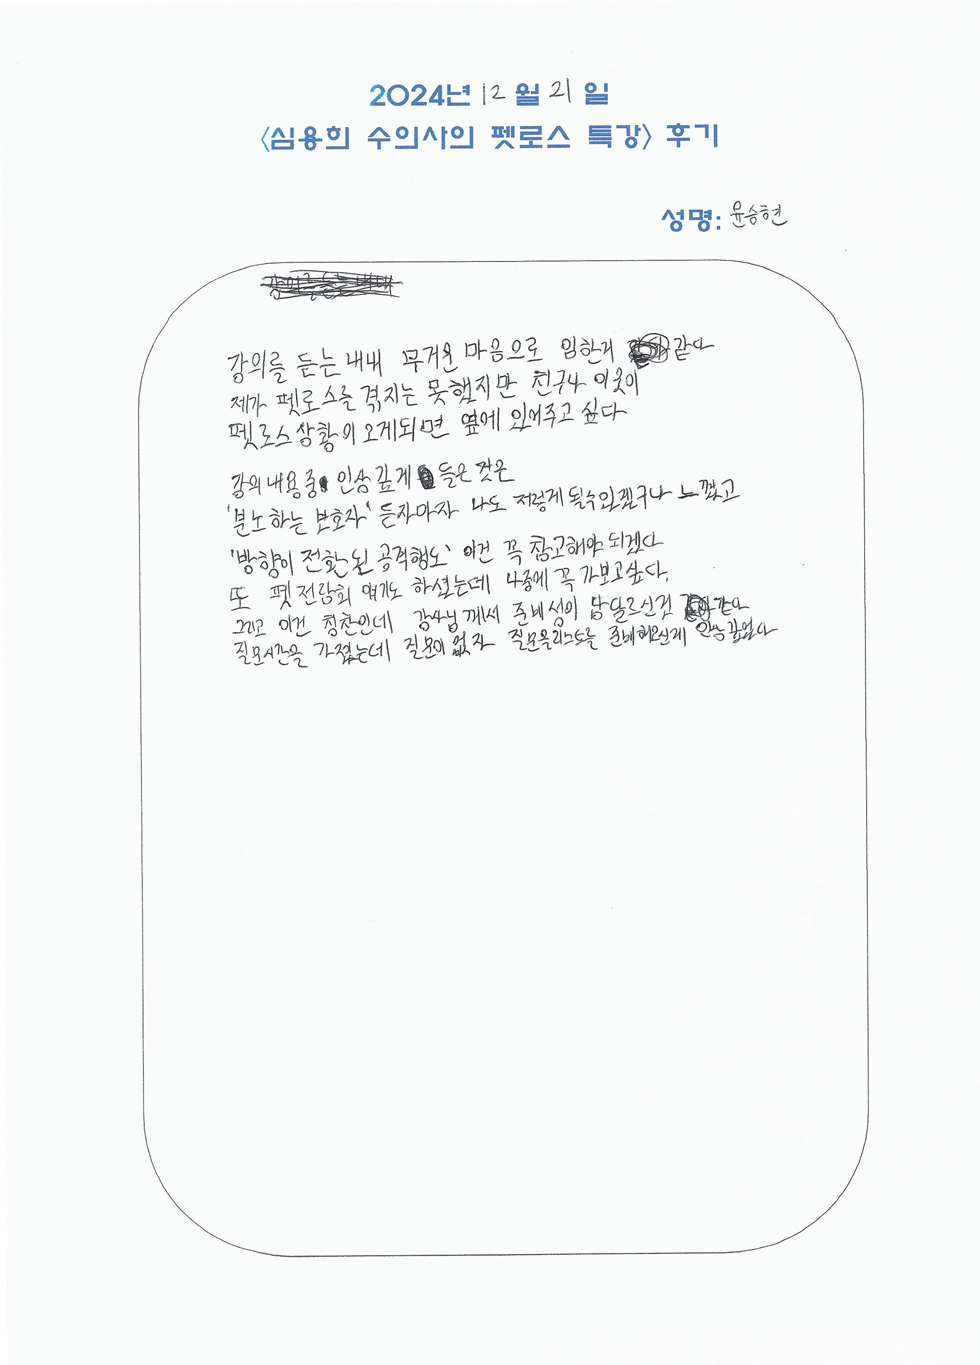 2024년 12월 21일
<심용희 수의사의 펫로스 특강> 후기
성명: 윤승현
강의를 듣는 내내 무거운 마음으로 임한거 같다
제가 펫로스를 겪지는 못했지만 친구나 이웃이
펫로스상황이 오게되면 옆에 있어주고 싶다
강의내용중 인상 깊게 들은 것은
'분노하는 보호자' 듣자마자 나도 저렇게 될수있겠구나 느꼈고
'방향이 전환된 공격행도' 이건 꼭 참고해야 되겠다
또 펫전람회 얘기도 하셨는데 나중에 꼭 가보고싶다.
그리고 이건 칭찬인데 강사님께서 준비성이 남달르신것 같다
질문시간을 가졌는데 질문이 없자 질문을리스트를 준비해오신게 인상깊었다